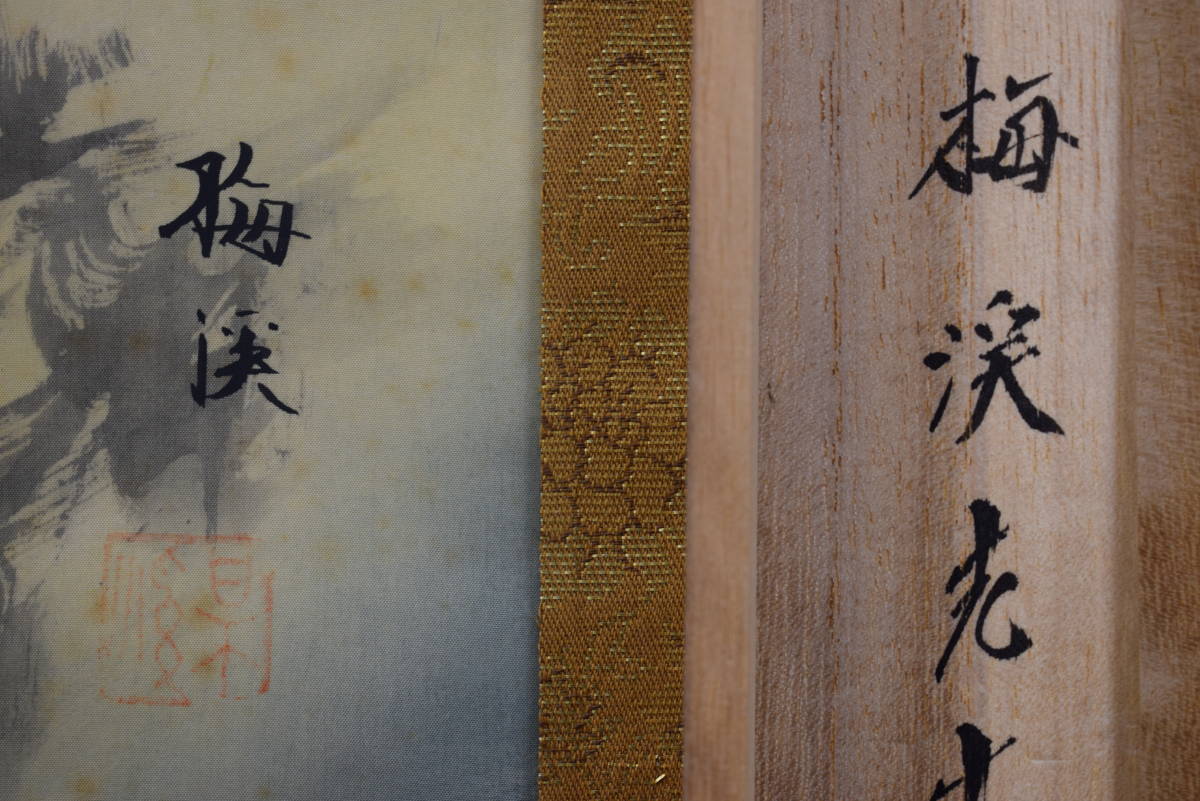 梅渓
梅渓先